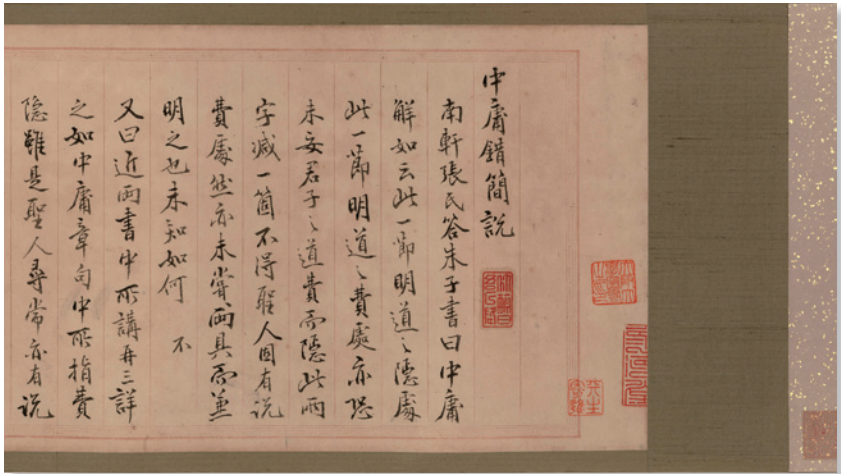 中庸錯簡說
南軒張氏答朱子書曰中庸
解如云此一節明道之隱處
此一節明道之費處亦恐
未安君子之道費而隱此兩
字減一箇不得聖人固有說
費處然亦未嘗兩具而並
明之也未知如何 不
又曰近兩書中所講再三詳
之如中庸章句中所指費
隱雖是聖人尋常亦有說